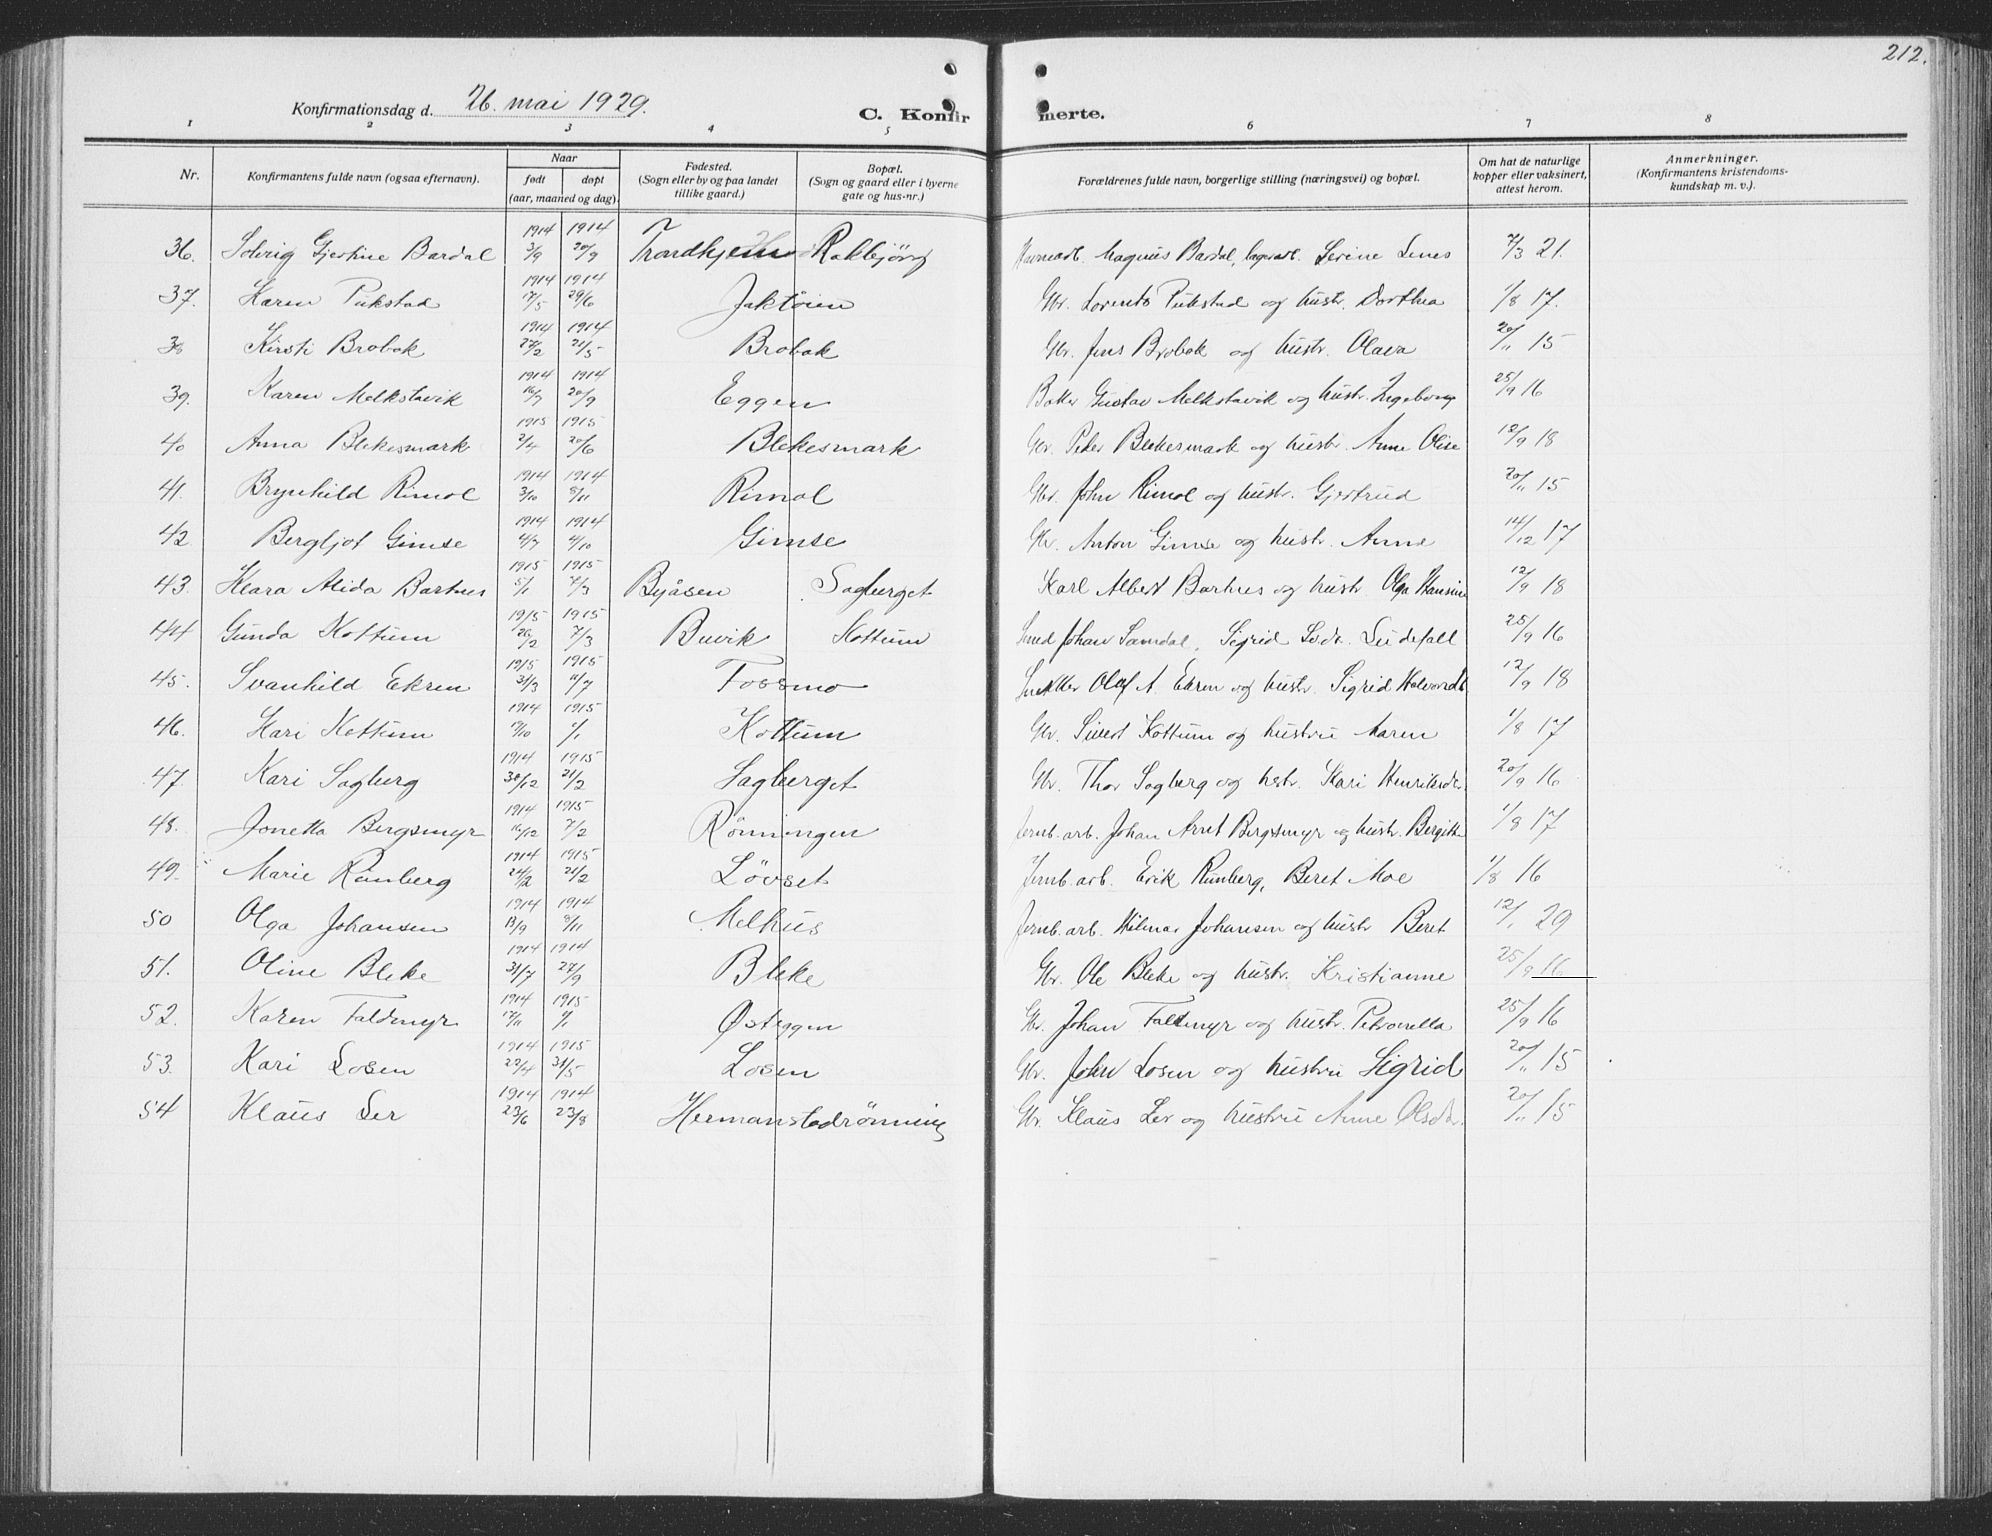 212.
Konfirmationsdag d. 26. mai 1929.
C. Konfirmerte.
1 2 3 4 5 6 7 8
Nr. Konfirmantens fulde navn (ogsaa efternavn). Naar født døpt (aar, maaned og dag). Fødested. (Sogn eller by og paa landet tillike gaard.) Bopæl. (Sogn og gaard eller i byerne gate og hus-nr.) Forældrenes fulde navn, borgerlige stilling (næringsvei) og bopæl. Om hat de naturlige kopper eller vaksinert, attest herom. Anmerkninger. (Konfirmantens kristendoms-kundskap m. v.).
36. Solveig Gjertine Bardal 1914 3/9 1914 20/9 Trondhjem Rakbjörg Havnearb. Magnus Bardal, lagerarb. Serine Lenes 7/3 21.
37. Karen Pukstad 1914 17/5 1914 29/6 Jaktöien Gbr. Lorents Pukstad og hustr. Dorthea 1/8 17.
38 Kirsti Brobak 1914 27/2 1914 21/5 Brobak Gbr. Jens Brobak og hustr. Olava 20/11 15
39. Karen Melkstavik 1914 16/7 1914 20/9 Eggen Gustav Melkstavik og hustr. Ingeborg 25/9 16
40 Anna Blekesmark 1915 2/4 1915 20/6 Blekesmark Gbr. Peder Blekesmark og hustr. Anne Olise 12/9 18
41. Brynhild Rimol 1914 3/10 1914 8/11 Rimol Gbr. John Rimol og hustr. Gjertrud 20/11 15
42. Bergljot Gimse 1914 4/7 1914 4/10 Gimse Gbr. Anton Gimse og hustr. Anne 14/12 17
43. Klara Alida Bartnes 1915 5/1 1915 7/3 Byåsen Sagberget Karl Albert Bartnes og hustr. Olga Hansine 12/9 18
44 Gunda Kottum 1915 26/2 1915 7/3 Buvik Kottum Smed Johan Samdal, Sigrid 25/9 16
45. Svanhild Ekren 1915 31/3 1915 11/7 Fossmo Snekker Olaf A. Ekren og hustr. Sigrid 12/9 18
46. Kari Kottum 1914 1915 Kottum Gbr. Sivert Kottum og hustru Maren 1/8 17
47. Kari Sagberg 1914 30/12 1915 21/2 Sagberget Gbr. Thor Sagberg og hstr. Kari Henriksdr. 20/9 16
48. Jonetta Bergsmyr 1914 16/12 1915 7/2 Rönningen Jernb. arb. Johan Arnt Bergsmyr og hustr. Bergitte 1/8 17
49. Marie Rönberg 1914 24/12 1915 21/2 Lövset Jernb. arb. Erik Rönberg, Beret Moe 1/8 16
50 Olga Johansen 1914 13/9 1914 8/11 Melhus Jernb. arb. Hilmar Johansen og hustr. Beret 12/1 29
51. Oline Bleke 1914 31/7 1914 27/9 Bleke Gbr. Ole Bleke og hustr. Kristianne 25/9 16
52. Karen Faldmyr 1914 17/11 1915 1/1 Østeggen Gbr. Johan Faldmyr og hustr. Petronella 25/9 16
53. Kari Losen 1914 22/4 1915 31/5 Losen Gbr. John Losen og hustru Sigrid 20/11 15
54 Klaus Ler 1914 23/6 1914 23/8 Hermanstadrönning Gbr. Klaus Ler og hustru Anne Olsdtr. 20/11 15